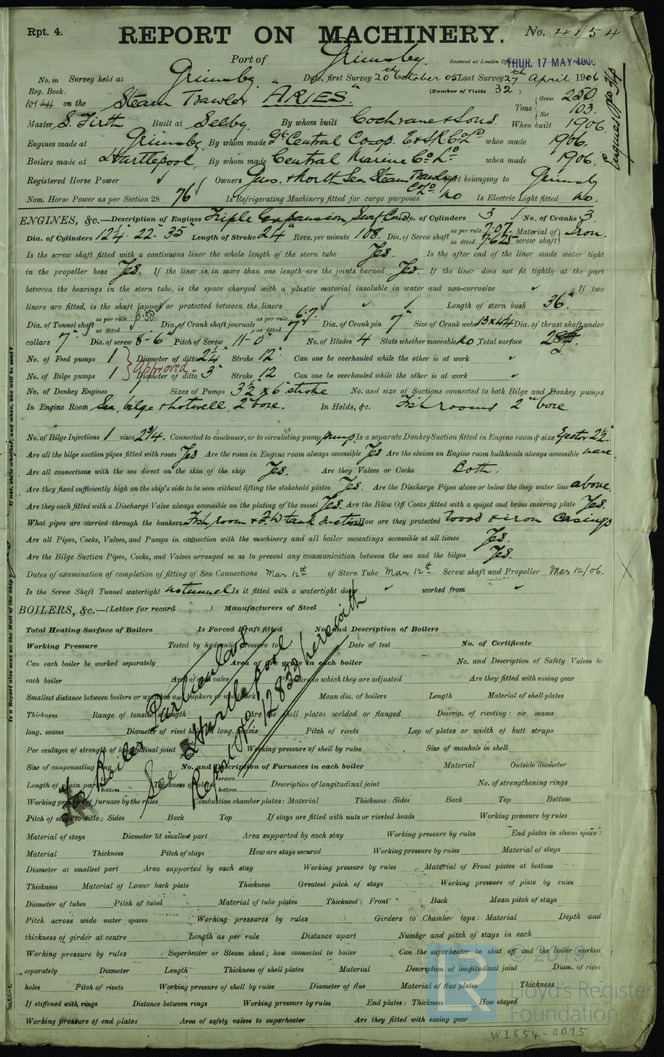 Rpt. 4.
REPORT ON MACHINERY.
No. 4154
Port of Grimsby.
THUR. 17 MAY 1906
No. in Survey held at Grimsby Date, first Survey 20th October 05 Last Survey 27th April 1906
Reg. Book. (Number of Visits 32)
on the Steam Trawler "ARIES" Tons Gross 250 Net 103
Master S. Firth Built at Selby By whom built Cochrane & Sons When built 1906
Engines made at Grimsby By whom made Gt Central Coop. E & S. R. Co Ld when made 1906
Boilers made at Hartlepool By whom made Central Marine Co Ld when made 1906
Registered Horse Power Owners Gus. & North Sea Steam Trawling Co Ld Port belonging to Grimsby
Nom. Horse Power as per Section 28 76 Is Refrigerating Machinery fitted for cargo purposes No Is Electric Light fitted No.
ENGINES, &c.—Description of Engines Triple Expansion Surf Cond. No. of Cylinders 3 No. of Cranks 3
Dia. of Cylinders 12¼" 22" 35" Length of Stroke 24" Revs. per minute 108 Dia. of Screw shaft as per rule 7.07 as fitted 7.625 Material of screw shaft Iron.
Is the screw shaft fitted with a continuous liner the whole length of the stern tube Yes. Is the after end of the liner made water tight
in the propeller boss Yes. If the liner is in more than one length are the joints burned Yes. If the liner does not fit tightly at the part
between the bearings in the stern tube, is the space charged with a plastic material insoluble in water and non-corrosive If two
liners are fitted, is the shaft lapped or protected between the liners Length of stern bush 36"
Dia. of Tunnel shaft as per rule as fitted Dia. of Crank shaft journals as per rule 6.7 as fitted 7" Dia. of Crank pin 7" Size of Crank webs 13 x 4¼ Dia. of thrust shaft under
collars 7" Dia. of screw 8-6" Pitch of Screw 11-0" No. of Blades 4 State whether moveable No Total surface
No. of Feed pumps 1 Diameter of ditto 2¼ Stroke 12" Can one be overhauled while the other is at work
approved
No. of Bilge pumps 1 Diameter of ditto 3" Stroke 12 Can one be overhauled while the other is at work
No. of Donkey Engines 1 Sizes of Pumps 3½ x 6" stroke No. and size of Suctions connected to both Bilge and Donkey pumps
In Engine Room Sea, bilge & hotwell 2" bore. In Holds, &c. Fish rooms 2" bore
No. of Bilge Injections 1 sizes 2¾. Connected to condenser, or to circulating pump pump Is a separate Donkey Suction fitted in Engine room & size Ejector 2½
Are all the bilge suction pipes fitted with roses Yes Are the roses in Engine room always accessible Yes Are the sluices on Engine room bulkheads always accessible none
Are all connections with the sea direct on the skin of the ship Yes. Are they Valves or Cocks Both.
Are they fixed sufficiently high on the ship's side to be seen without lifting the stokehold plates Yes. Are the Discharge Pipes above or below the deep water line above
Are they each fitted with a Discharge Valve always accessible on the plating of the vessel Yes. Are the Blow Off Cocks fitted with a spigot and brass covering plate Yes.
What pipes are carried through the bunkers Fish room & F.W. tank suctions How are they protected Wood & iron casings
Are all Pipes, Cocks, Valves, and Pumps in connection with the machinery and all boiler mountings accessible at all times Yes.
Are the Bilge Suction Pipes, Cocks, and Valves arranged so as to prevent any communication between the sea and the bilges Yes.
Dates of examination of completion of fitting of Sea Connections Mar 12th of Stern Tube Mar 12th Screw shaft and Propeller Mar 12/06.
Is the Screw Shaft Tunnel watertight no tunnel Is it fitted with a watertight door worked from
BOILERS, &c.—(Letter for record ) Manufacturers of Steel
Total Heating Surface of Boilers Is Forced Draft fitted No. and Description of Boilers
Working Pressure Tested by hydraulic pressure to Date of test No. of Certificate
Can each boiler be worked separately Area of fire grate in each boiler No. and Description of Safety Valves to
each boiler Area of each valve Pressure to which they are adjusted Are they fitted with easing gear
Smallest distance between boilers or uptakes and bunkers or woodwork Mean dia. of boilers Length Material of shell plates
Thickness Range of tensile strength Are the shell plates welded or flanged Descrip. of riveting: cir. seams
long. seams Diameter of rivet holes in long. seams Pitch of rivets Lap of plates or width of butt straps
Per centages of strength of longitudinal joint Working pressure of shell by rules Size of manhole in shell
Size of compensating ring No. and Description of Furnaces in each boiler Material Outside diameter
Length of plain part Thickness of plates crown bottom Description of longitudinal joint No. of strengthening rings
Working pressure of furnace by the rules Combustion chamber plates: Material Thickness: Sides Back Top Bottom
Pitch of stays to ditto: Sides Back Top If stays are fitted with nuts or riveted heads Working pressure by rules
Material of stays Diameter at smallest part Area supported by each stay Working pressure by rules End plates in steam space:
Material Thickness Pitch of stays How are stays secured Working pressure by rules Material of stays
Diameter at smallest part Area supported by each stay Working pressure by rules Material of Front plates at bottom
Thickness Material of Lower back plate Thickness Greatest pitch of stays Working pressure of plate by rules
Diameter of tubes Pitch of tubes Material of tube plates Thickness: Front Back Mean pitch of stays
Pitch across wide water spaces Working pressures by rules Girders to Chamber tops: Material Depth and
thickness of girder at centre Length as per rule Distance apart Number and pitch of stays in each
Working pressure by rules Superheater or Steam chest; how connected to boiler Can the superheater be shut off and the boiler worked
separately Diameter Length Thickness of shell plates Material Description of longitudinal joint Diam. of rivet
holes Pitch of rivets Working pressure of shell by rules Diameter of flue Material of flue plates Thickness
If stiffened with rings Distance between rings Working pressure by rules End plates: Thickness How stayed
Working pressure of end plates Area of safety valves to superheater Are they fitted with easing gear
For Boiler Particulars
See Hartlepool
Report No. 12833 herewith
© 2019
LR
Lloyd's Register
Foundation
W1654-0095